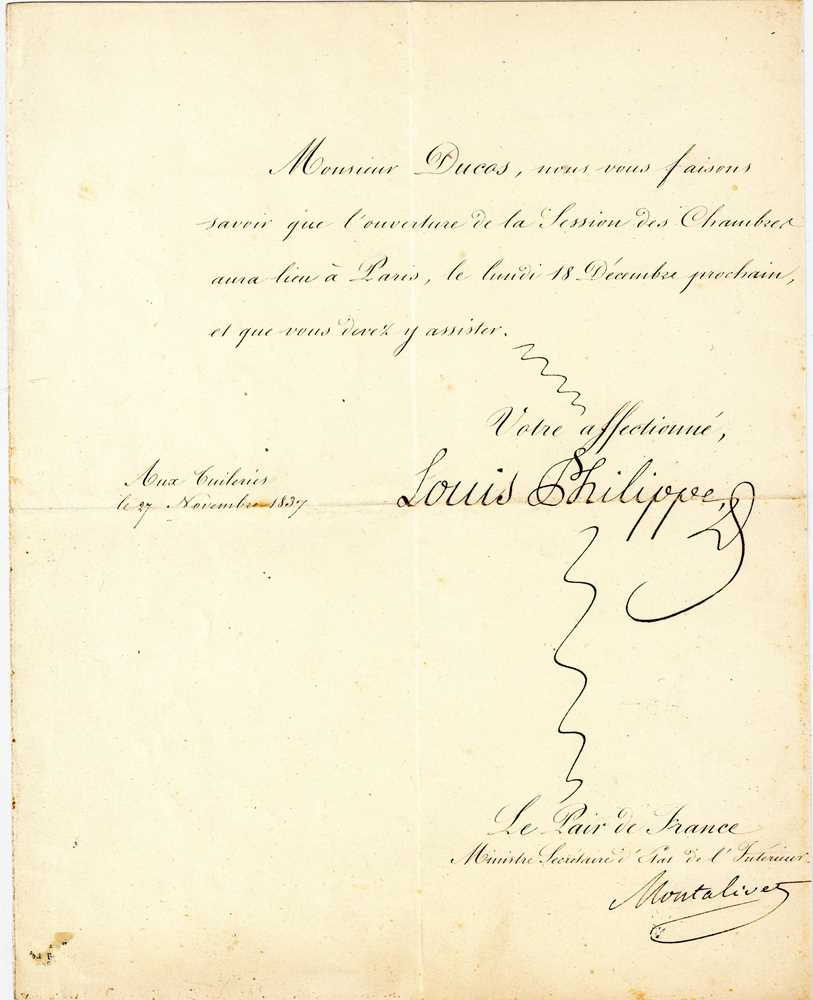 Monsieur Ducos, nous vous faisons
savoir que l'ouverture de la Session des Chambres
aura lieu à Paris, le lundi 18 Décembre prochain,
et que vous devez y assister.
Votre affectionné,
Aux Tuileries
le 27 Novembre 1837
Louis Philippe,
Le Pair de France
Ministre Secrétaire d'Etat de l'Intérieur
Montalivet